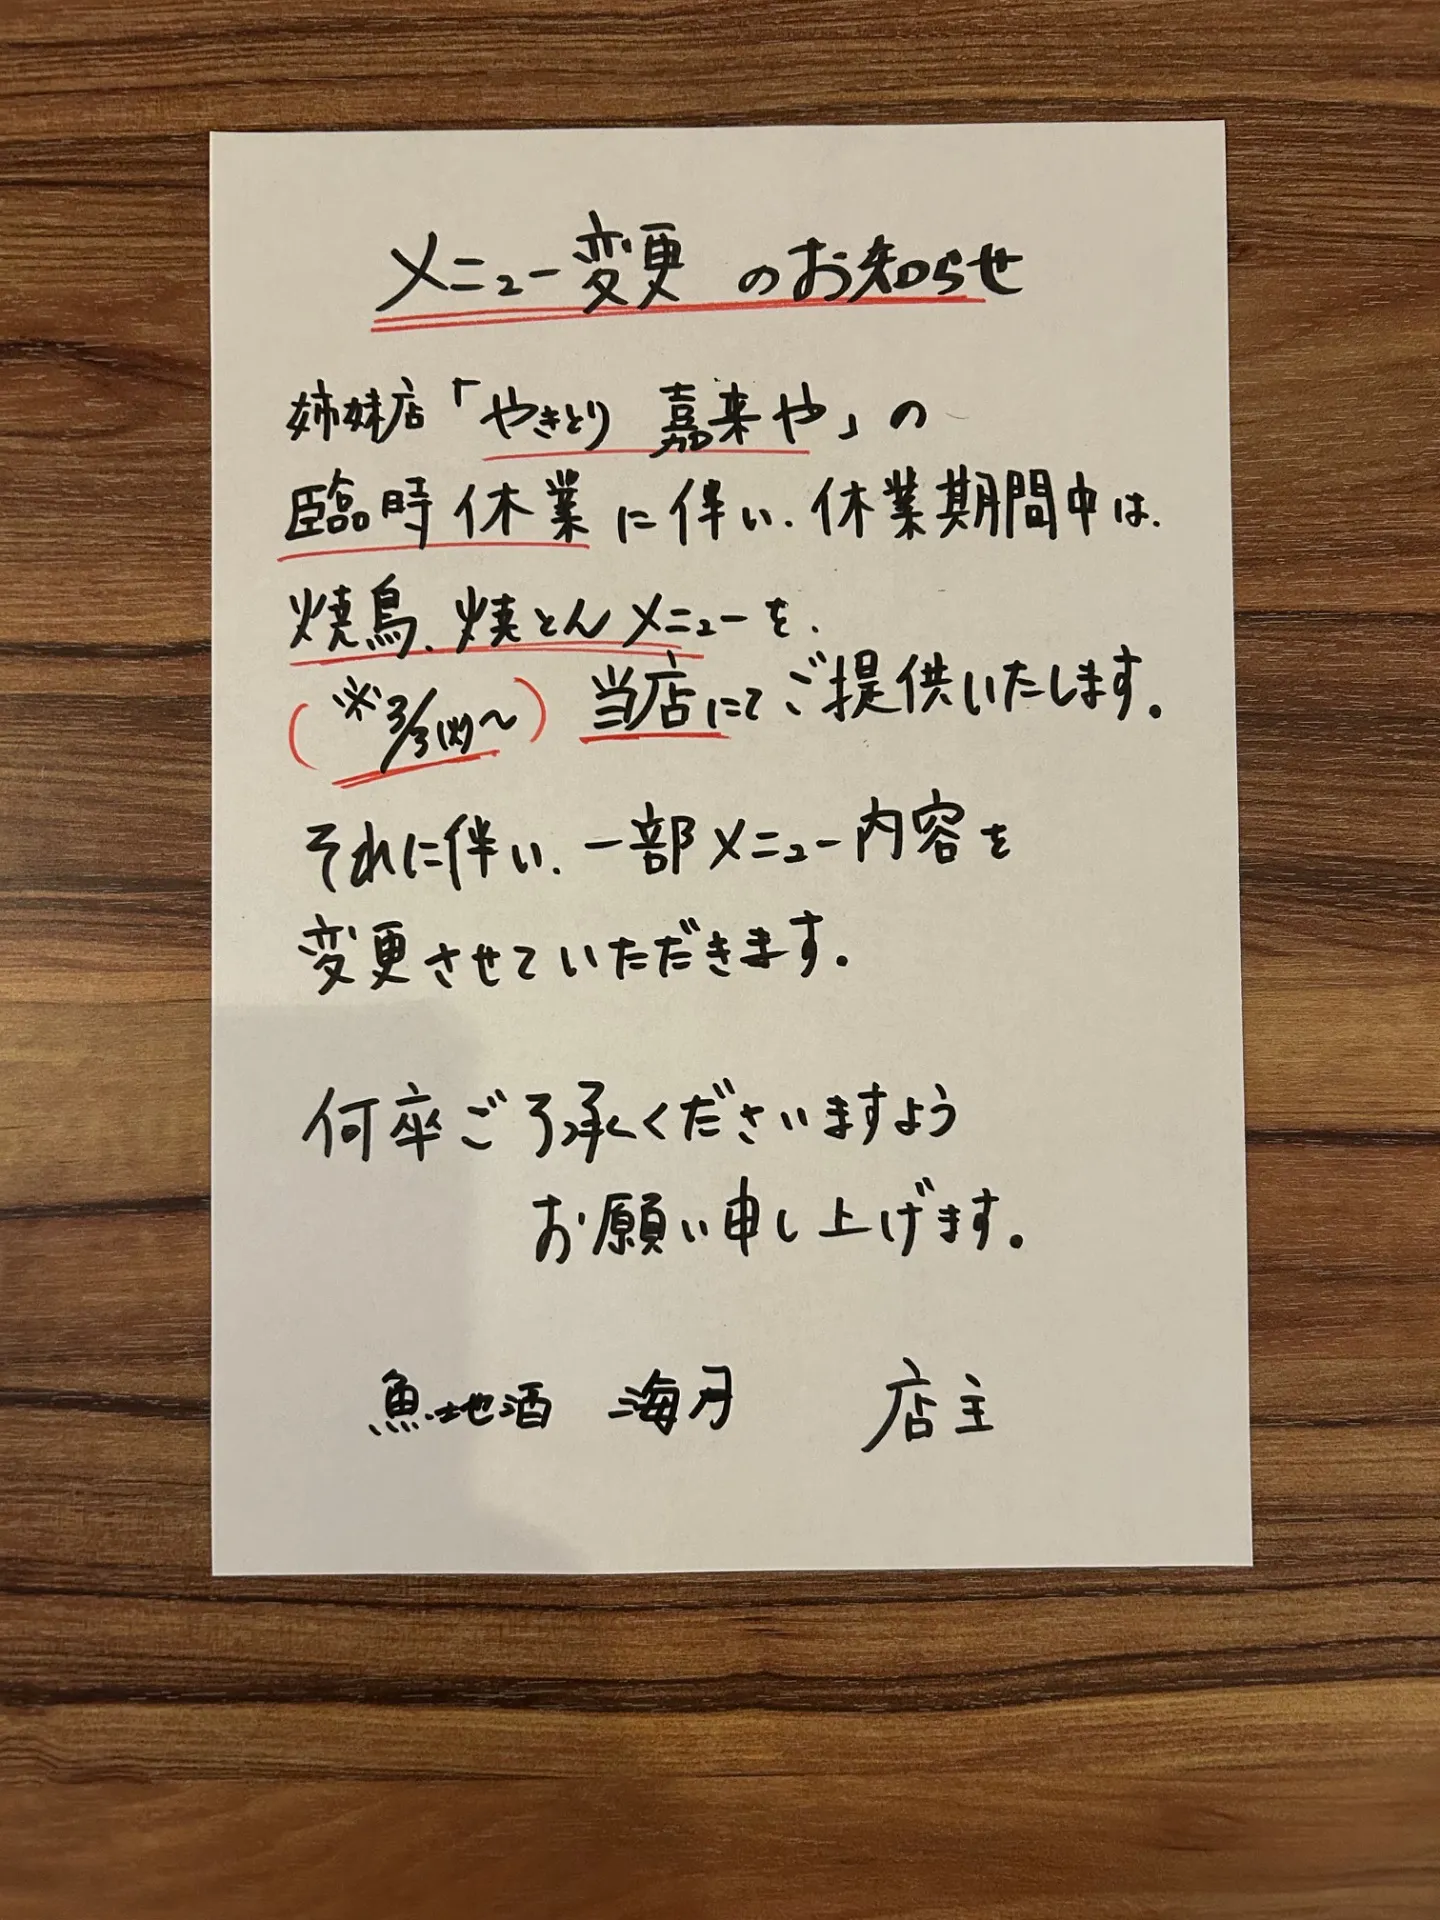 メニュー変更のお知らせ
姉妹店「やきとり 嘉来や」の
臨時休業に伴い、休業期間中は、
焼鳥、焼とんメニューを、
(※3/3(火)～) 当店にてご提供いたします。
それに伴い、一部メニュー内容を
変更させていただきます。
何卒ご了承くださいますよう
お願い申し上げます。
魚・地酒 海月 店主